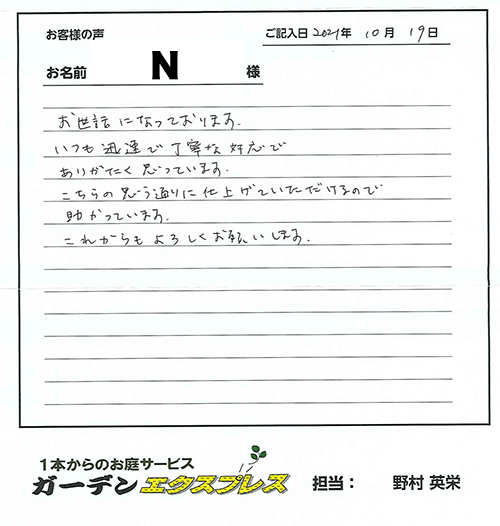 お客様の声
ご記入日 2021年 10月 19日
お名前 N 様
お世話になっております.
いつも迅速で丁寧な対応で
ありがたく思っています.
こちらの思う通りに仕上げていただけるので
助かっています.
これからもよろしくお願いします.
1本からのお庭サービス
ガーデンエクスプレス 担当： 野村 英栄